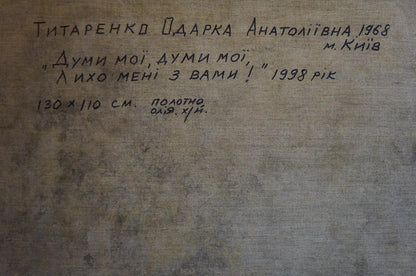 Титаренко Одарка Анатоліївна 1968
м. Київ
„Думи мої, думи мої,
Лихо мені з вами!" 1998 рік
130 x 110 см. полотно,
олія. х/м.